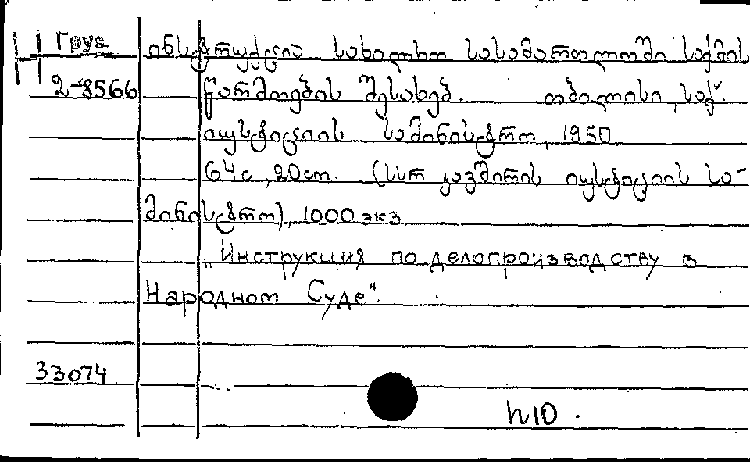 Груз
2-8566
ინსტრუქცია სახალხო სასამართლოში საქმის
წარმოების შესახებ. თბილისი, საქ.
იუსტიციის სამინისტრო, 1950
64с, 20см. (სსრ კავშირის იუსტიციის სა-
მინისტრო), 1000 экз
„Инструкция по делопроизводству в
Народном Суде“.
33074
h10.